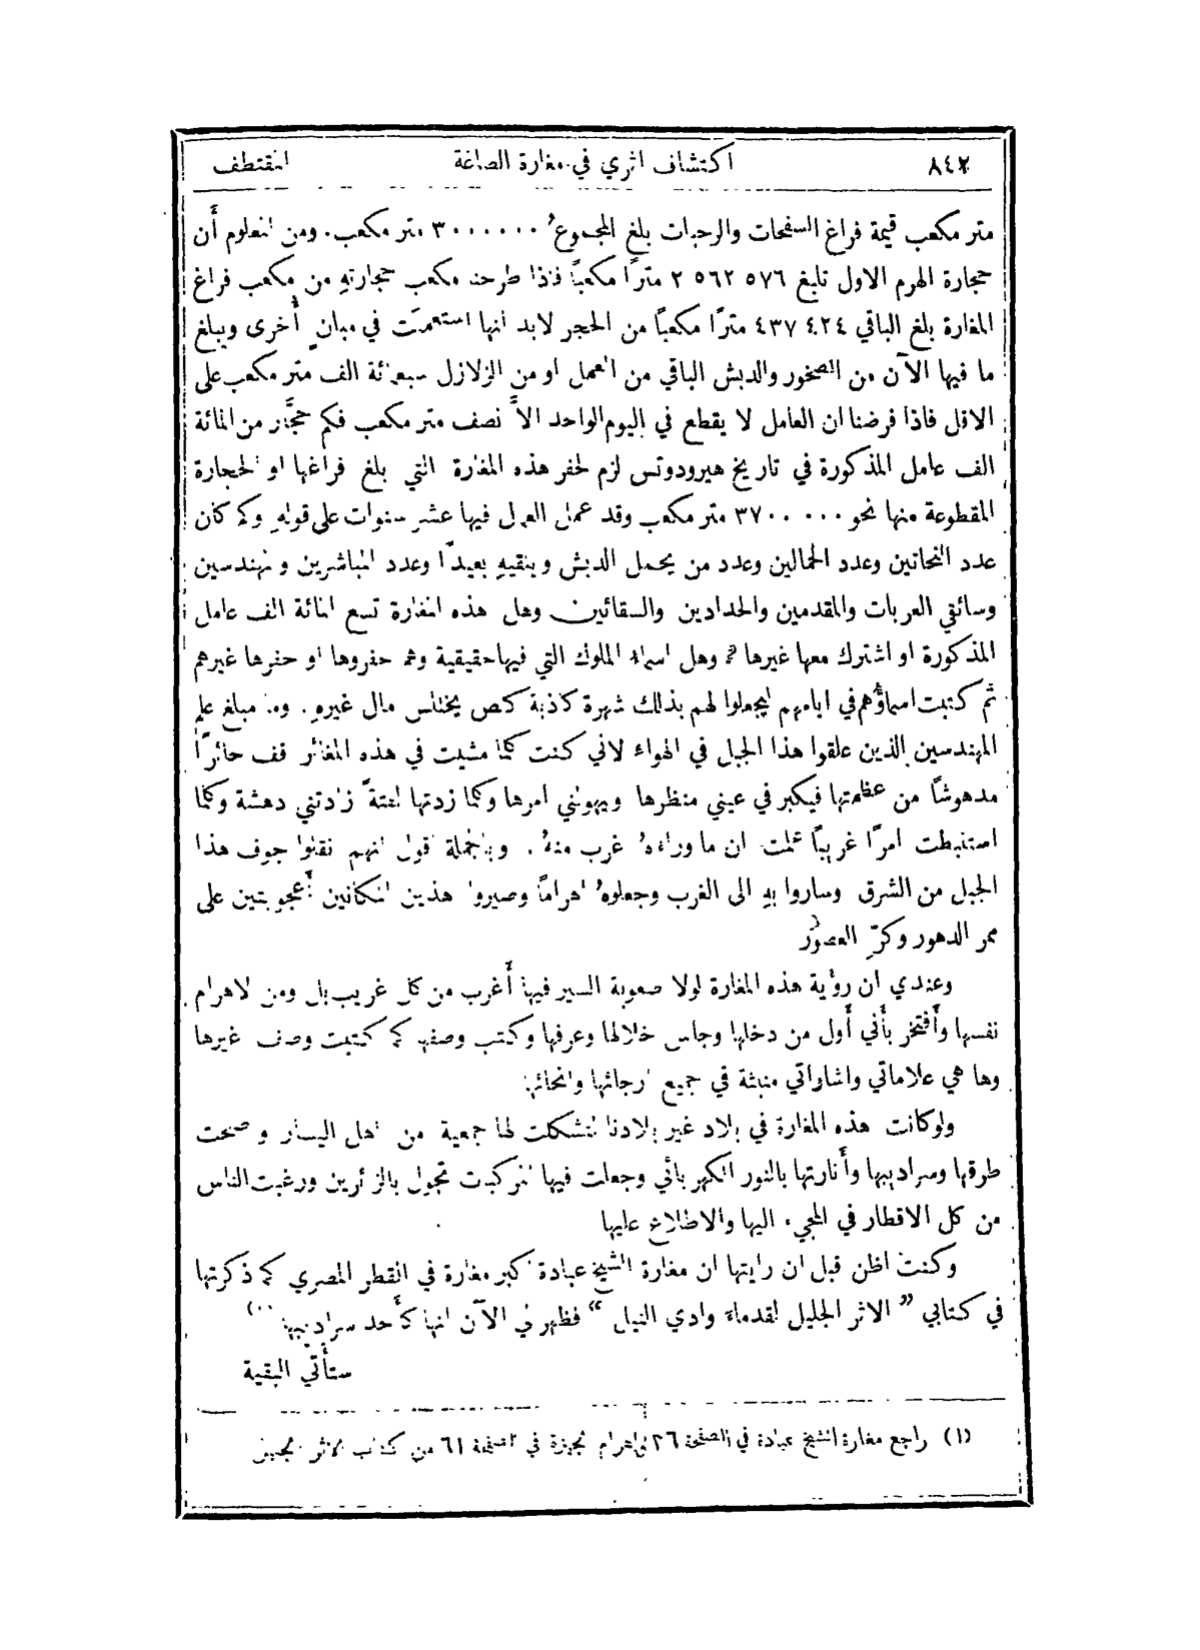 ٨٤٢ اكتشاف اثري في مغارة الصاغة المقتطف
متر مكعب قيمة فراغ السفحات والرحبات بلغ المجموعُ ٣٠٠٠٠٠٠ متر مكعب. ومن المعلوم أن
حجارة الهرم الاول تبلغ ٥٧٦ ٥٦٢ ٢ مترًا مكعبًا فاذا طرحنا مكعب حجارتهِ من مكعب فراغ
المغارة بلغ الباقي ٤٢٤ ٤٣٧ مترًا مكعبًا من الحجر لابد انها استعملت في مبانٍ أُخرى ويبلغ
ما فيها الآن من الصخور والدبش الباقي من العمل او من الزلازل سبعمائة الف متر مكعب على
الاقل فاذا فرضنا ان العامل لا يقطع في اليوم الواحد الاَّ نصف متر مكعب فكم حجَّار من المائة
الف عامل المذكورة في تاريخ هيرودوتس لزم لحفر هذه المغارة التي بلغ فراغها او الحجارة
المقطوعة منها نحو ٠٠٠ ٣٧٠٠ متر مكعب وقد عمل العمل فيها عشر سنوات على قولهِ وكم كان
عدد النحاتين وعدد الحمالين وعدد من يحمل الدبش وينقيهِ بعيدًا وعدد المباشرين والمهندسين
وسائقي العربات والمقدمين والحدادين والسقائين وهل هذه المغارة تسع المائة الف عامل
المذكورة او اشترك معها غيرها ؟ وهل اسماء الملوك التي فيها حقيقية وهم حفروها او حفرها غيرهم
ثم كتبت اسماؤُهم في ايامهم ليجعلوا لهم بذلك شهرة كاذبة كلص يختلس مال غيرهِ. وما مبلغ علم
المهندسين الذين علقوا هذا الجبل في الهواء لاني كنت كلما مشيت في هذه المغائر اقف حائرًا
مدهوشًا من عظمتها فيكبر في عيني منظرها ويهولني امرها وكلما زدتها لفتةً زادتني دهشة وكلما
استنبطت امرًا غريبًا علمت ان ما وراءهُ اغرب منهُ. وبالجملة اقول انهم نقلوا جوف هذا
الجبل من الشرق وساروا بهِ الى الغرب وجعلوهُ اهرامًا وصيروا هذين المكانين أُعجوبتين على
ممر الدهور وكرّ العصور
وعندي ان رؤية هذه المغارة لولا صعوبة السير فيها أَغرب من كل غريب بل ومن الاهرام
نفسها وأَفتخر بأَني أَول من دخلها وجاس خلالها وعرفها وكتب وصفها كما كتبت وصف غيرها
وها هي علاماتي واشاراتي منبثة في جميع ارجائها وانحائها
ولو كانت هذه المغارة في بلاد غير بلادنا لتشكلت لها جمعية من اهل اليسار واصلحت
طرقها وسراديبها وأَنارتها بالنور الكهربائي وجعلت فيها المركبات تجول بالزائرين ورغبت الناس
من كل الاقطار في المجيء اليها والاطلاع عليها
وكنت اظن قبل ان رايتها ان مغارة الشيخ عبادة اكبر مغارة في القطر المصري كما ذكرتها
في كتابي " الاثر الجليل لقدماء وادي النيل " فظهر لي الآن انها كأَحد سراديبها (١)
ستأتي البقية
(١) راجع مغارة الشيخ عبادة في الصفحة ٢٦ واهرام الجيزة في الصفحة ٦١ من كتاب الاثر الجليل